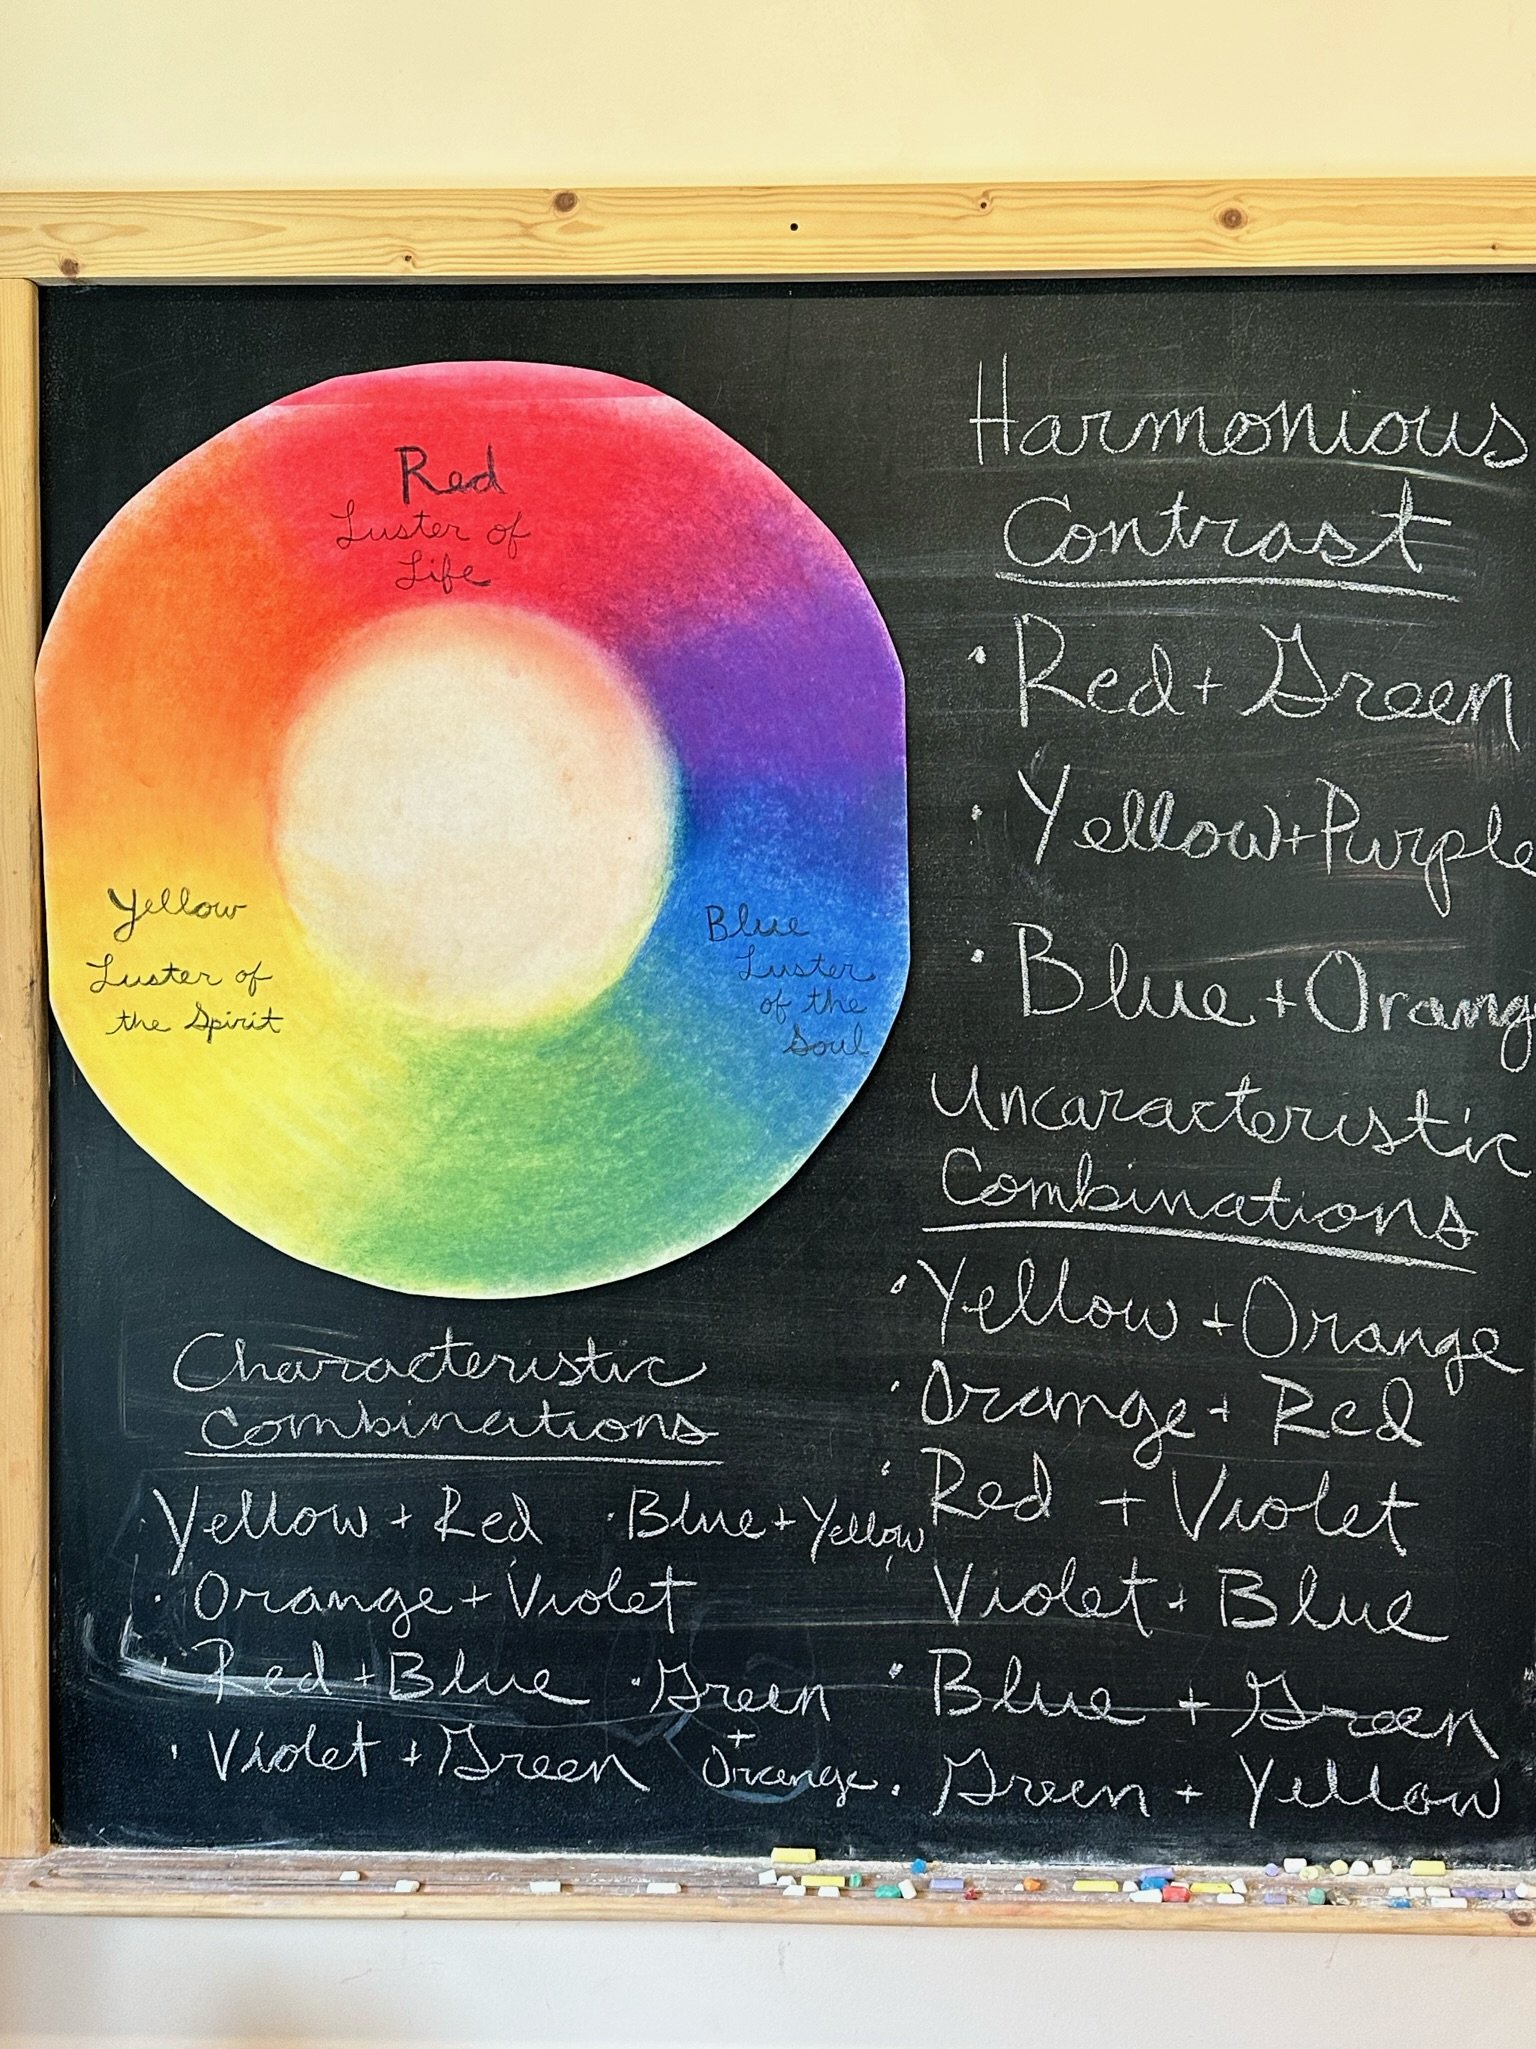 Red
Luster of
Life
Yellow
Luster of
the Spirit
Blue
Luster
of the
Soul
Harmonious
Contrast
· Red + Green
· Yellow + Purple
· Blue + Orang
Uncaracteristic
Combinations
· Yellow + Orange
· Orange + Red
· Red + Violet
Violet + Blue
· Blue + Green
· Green + Yellow
Characteristic
Combinations
· Yellow + Red · Blue + Yellow
· Orange + Violet
· Red + Blue · Green
+
· Violet + Green Orange